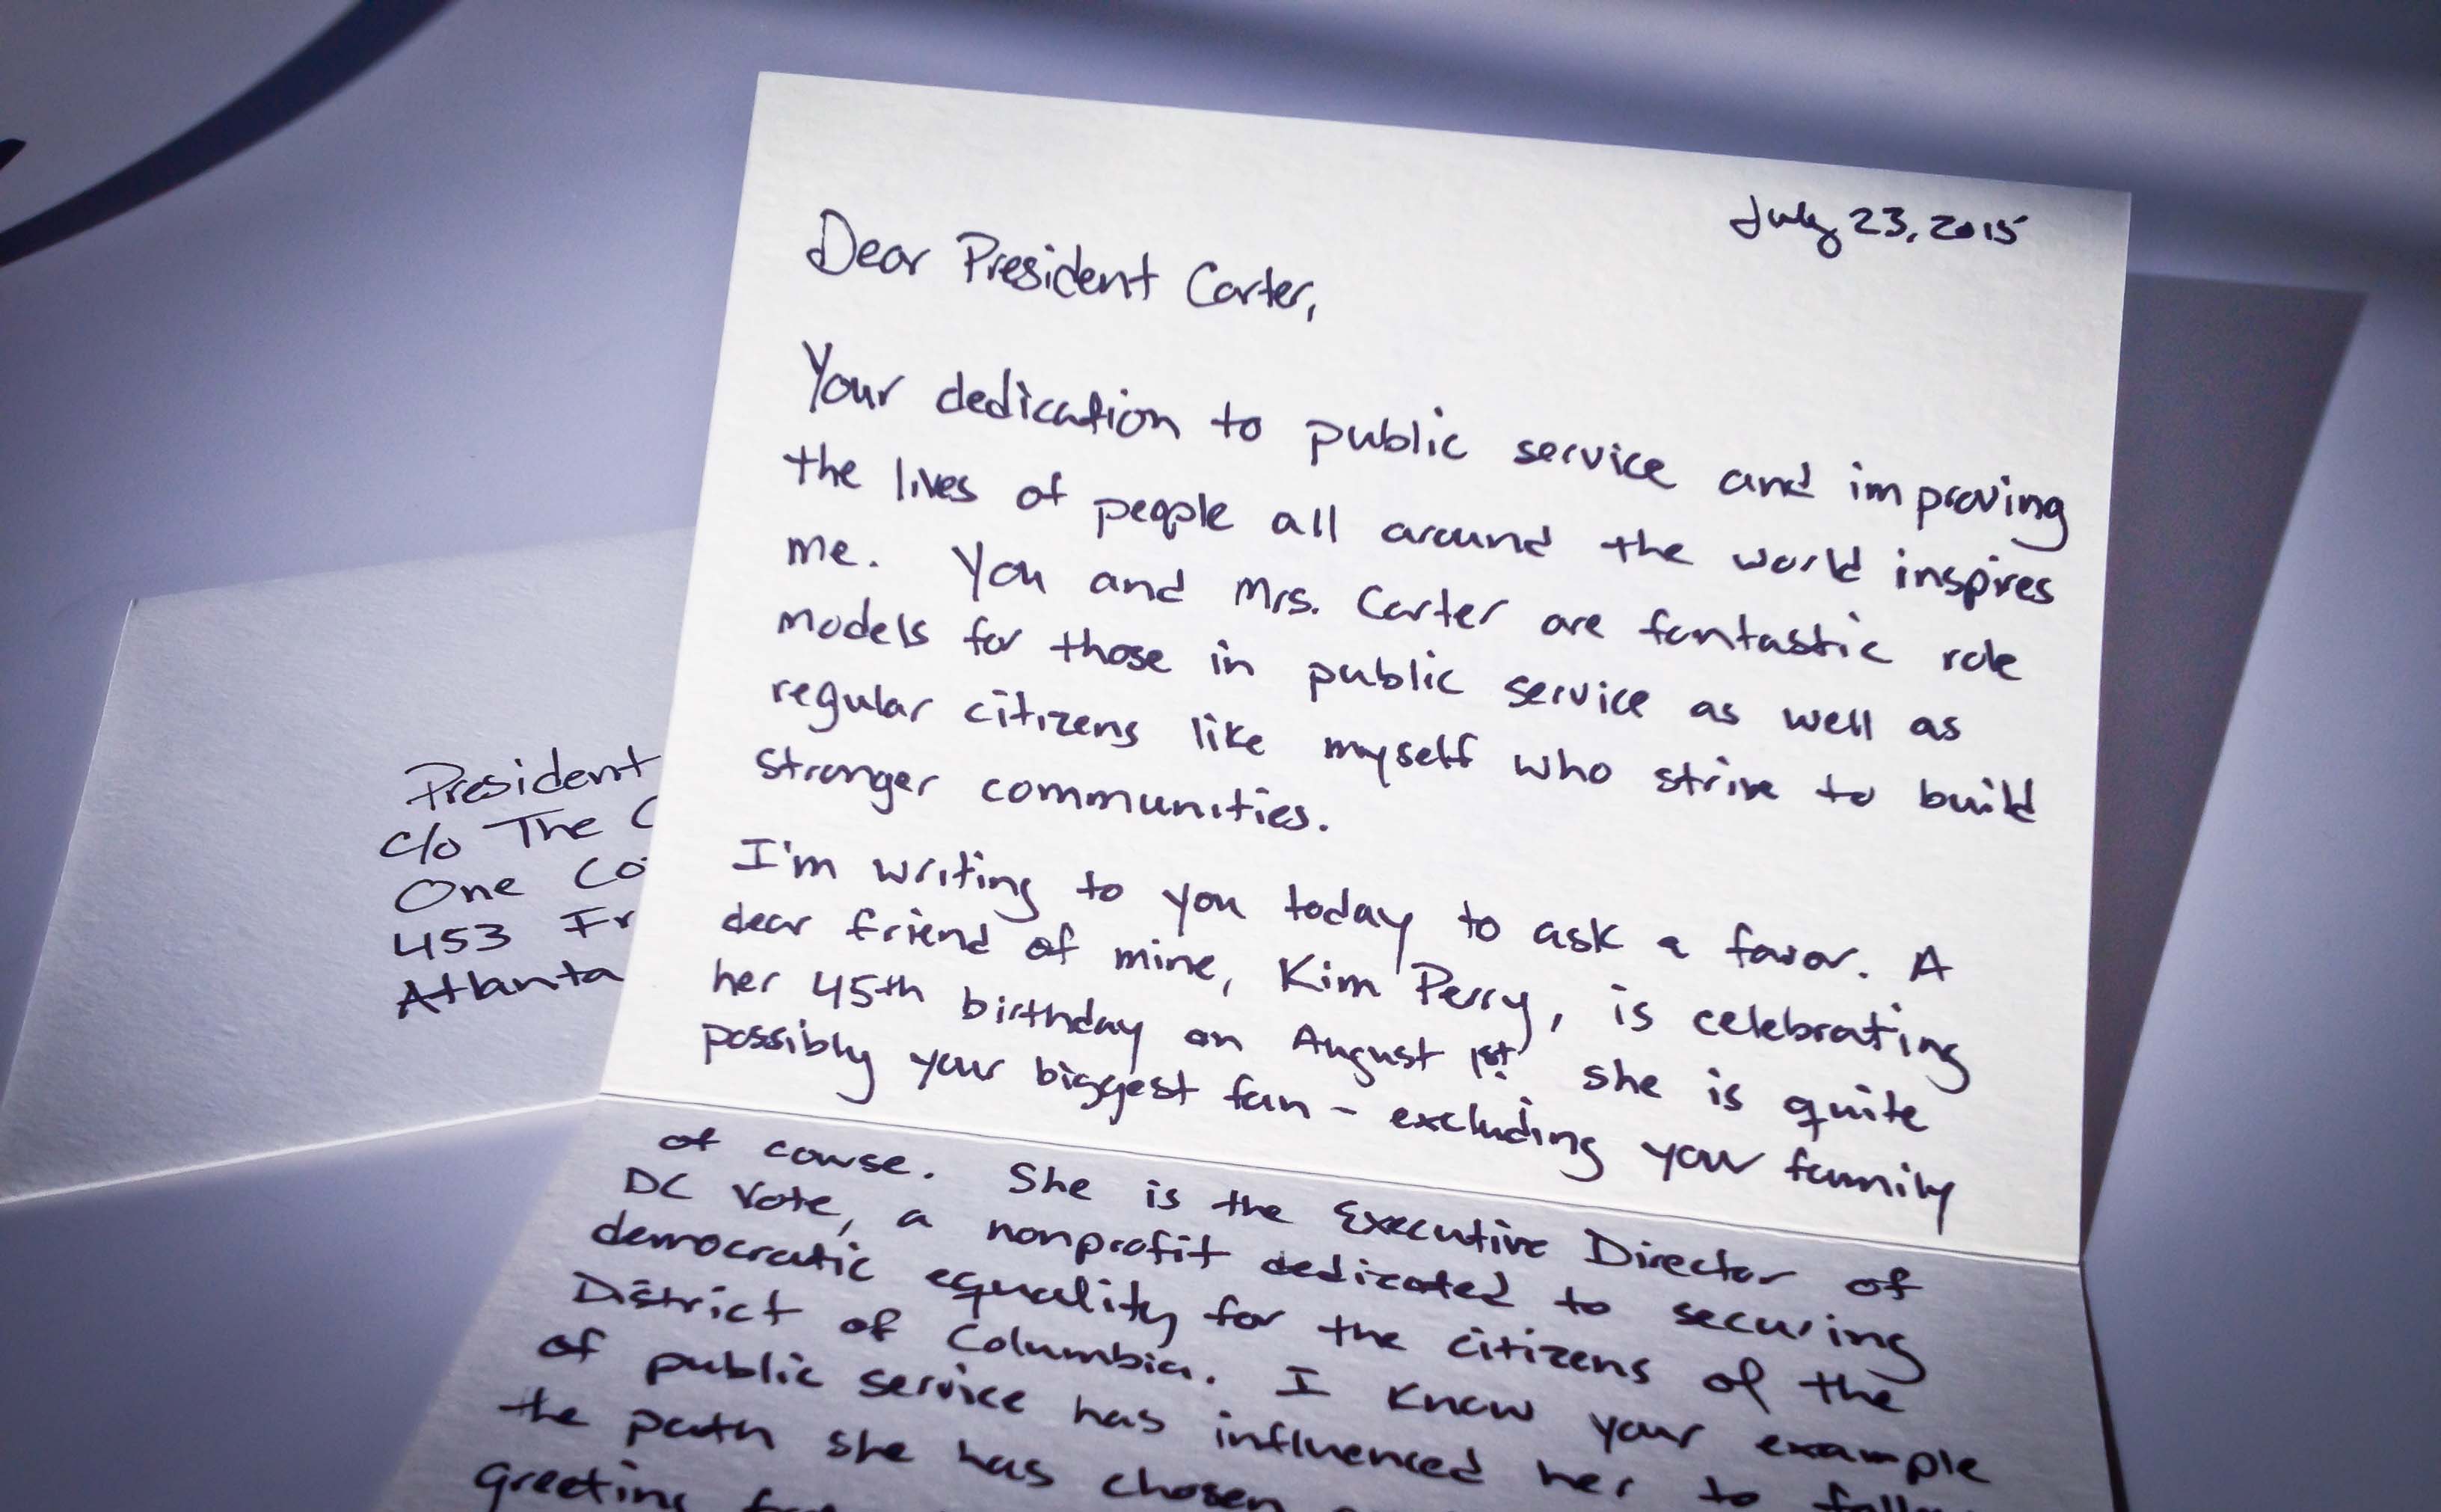 July 23, 2015
Dear President Carter,
Your dedication to public service and improving
the lives of people all around the world inspires
me. You and Mrs. Carter are fantastic role
models for those in public service as well as
regular citizens like myself who strive to build
stronger communities.
I'm writing to you today to ask a favor. A
dear friend of mine, Kim Perry, is celebrating
her 45th birthday on August 1st. She is quite
possibly your biggest fan - excluding your family
of course. She is the Executive Director of
DC Vote, a nonprofit dedicated to securing
democratic equality for the citizens of the
District of Columbia. I know your example
of public service has influenced her to
the path she has chosen
greeting
President
c/o The
One
453
Atlanta